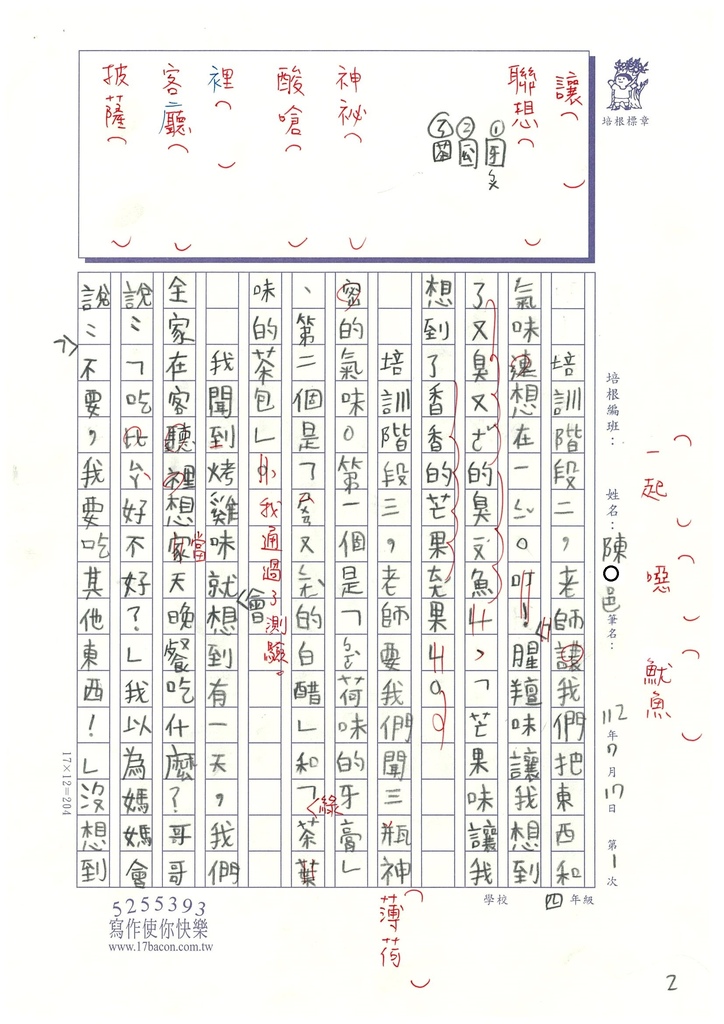 讓（　）
聯想（　）
①牙
②
③茶
神祕（　）
酸嗆（　）
裡（　）
客廳（　）
披薩（　）
培根標章
培根編班：
姓名：陳○邑
筆名：
112年7月17日 第1次
（一起）
（噁）
（魷魚）
培訓階段二，老師讓我們把東西和
氣味連想在一ㄑㄧˇ。叮！腥羶味讓我想到
了又臭又ㄜˇ的臭ㄧㄡˊ魚，「芒果味讓我
想到了香香的芒果
培訓階段三，老師要我們聞三瓶神
密的氣味。第一個是「ㄅㄛˋ荷味的牙膏」
、第二個是「又的白醋」和「綠茶葉
味的茶包」我通過了測驗。
我聞到烤雞味就會想到有一天，我們
全家在客聽裡想當天晚餐吃什麼？哥哥
說：「吃比ㄙㄚˋ好不好？」我以為媽媽會
說：「不要，我要吃其他東西！」沒想到
17×12=204
5255393
寫作使你快樂
www.17bacon.com.tw
學校
四年級
（薄荷）
2